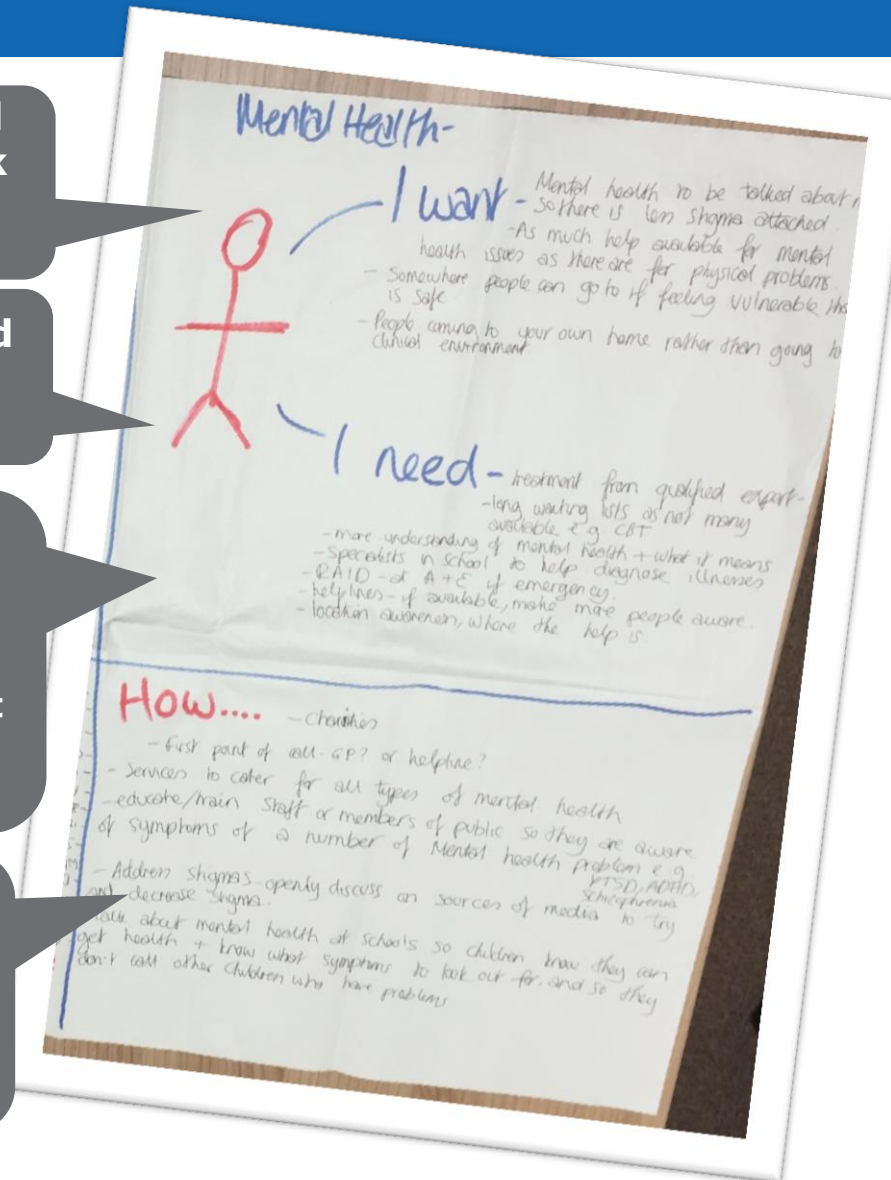 k
d
t
Mental Health-
I want - Mental health to be talked about
so there is less stigma attached.
- As much help available for mental
health issues as there are for physical problems.
- Somewhere people can go to if feeling vulnerable
is safe
- People coming to your own home rather then going to
clinical environment
I need - treatment from qualified expert-
-long waiting lists as not many
available e.g CBT
-more understanding of mental health + what it means
-Specialists in school to help diagnose illnesses
-RAID - at A+E if emergency.
-helplines - if available, make more people aware.
- location awareness, where the help is
How.... - Charities
- First point of call - GP? or helpline?
- Services to cater for all types of mental health
-educate/train staff or members of public so they are aware
of symptoms of a number of Mental health problem e.g
PTSD, ADHD,
Schizophrenia
- Address stigmas - openly discuss on sources of media to try
and decrease stigma.
talk about mental health at schools so children know they can
get health + know what symptoms to look out for. and so they
don't call other children who have problems